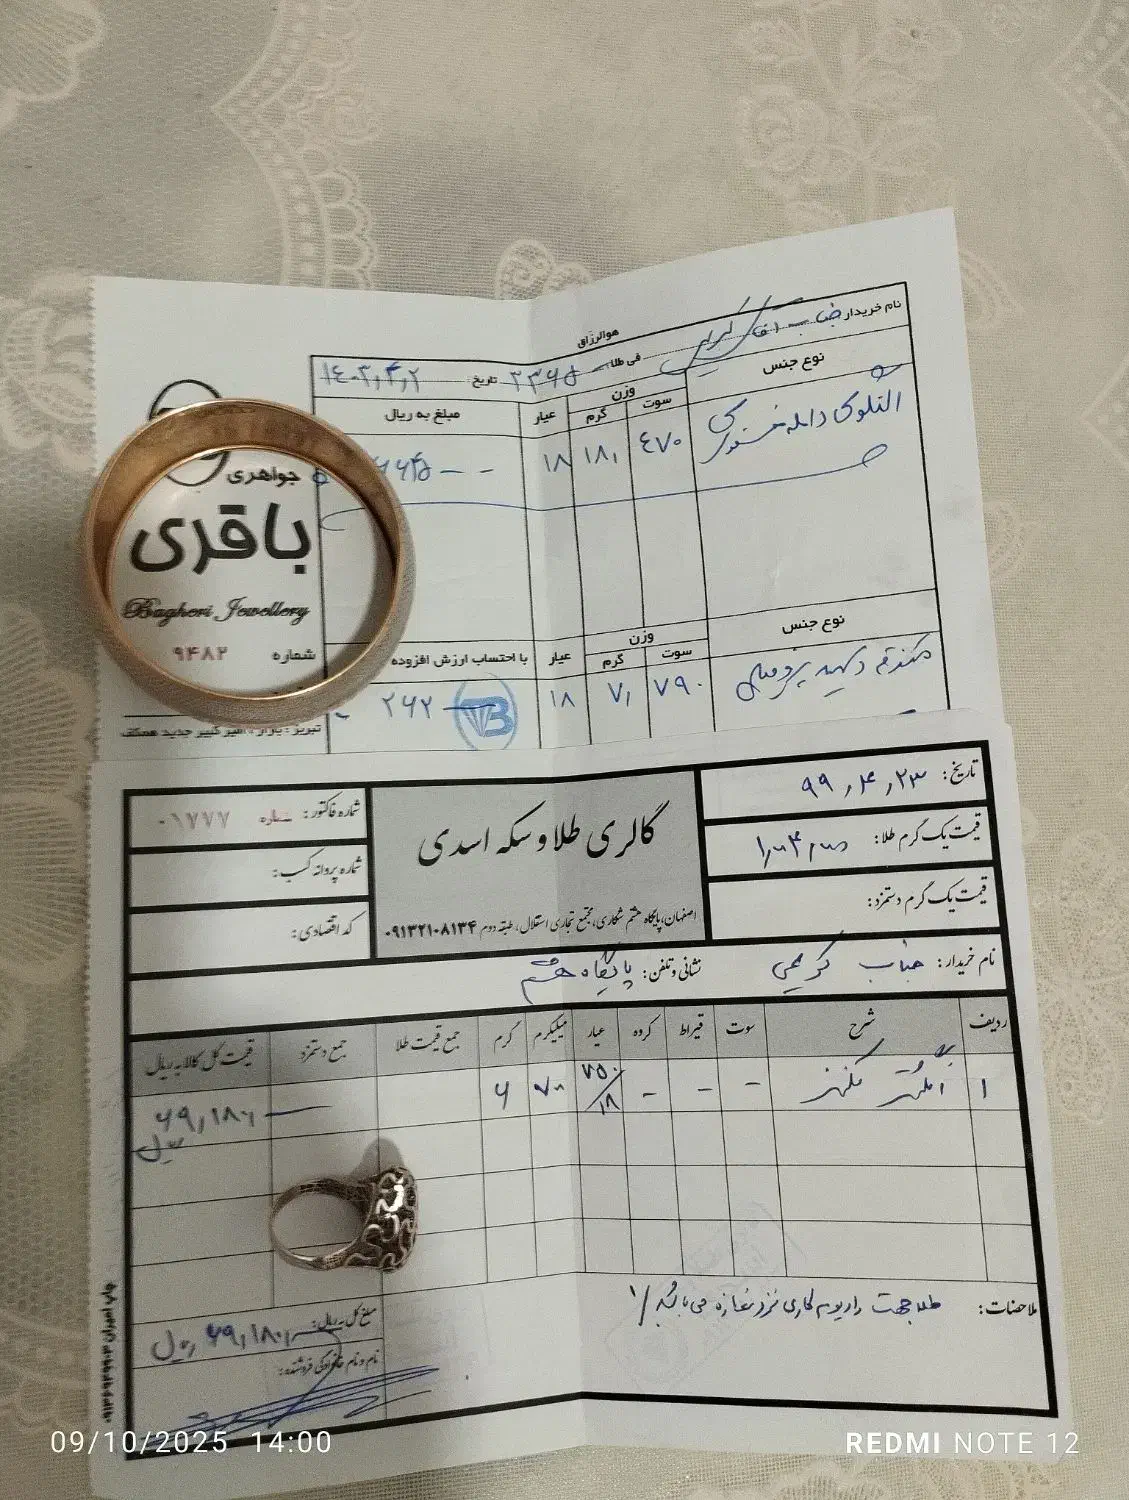 هوالرزاق
نام خریدار جناب آقای کریمی
فی طلا ۳۳۶۵ تاریخ ۱۴۰۳,۴,۲
نوع جنس وزن عیار مبلغ به ریال
سوت گرم
النگوی ۴۷۰ ۱۸, ۱۸
جواهری
باقری
Bagheri Jewellery
شماره ۹۴۸۲
نوع جنس وزن عیار با احتساب ارزش افزوده
سوت گرم
۷۹۰ ۷, ۱۸ ۲۶۲
تبریز : بازار ، امیر کبیر جدید همکف
تاریخ: ۹۹,۴,۲۳
قیمت یک گرم طلا:
قیمت یک گرم دستمزد:
گالری طلا و سکه اسدی
اصفهان، پایگاه هشتم شکاری، مجتمع تجاری استقلال، طبقه دوم ۰۹۱۳۲۱۰۸۱۳۴
شماره فاکتور: شماره ۰۱۷۷۷
شماره پروانه کسب:
کد اقتصادی:
نام خریدار: جناب کریمی نشانی و تلفن: پایگاه هشتم
ردیف شرح سوت قیراط کرده عیار میلیگرم گرم جمع قیمت طلا جمع دستمزد قیمت کل کالا به ریال
۱ - - - ۷۵۰/۱۸ ۷۰ ۶ ۶۹,۱۸۰,
ریال
ملاحظات: طلا جهت نزد مغازه می باشد
مبلغ کل به ریال: ۶۹,۱۸۰, ریال
نام و نام خانوادگی فروشنده:
09/10/2025 14:00
REDMI NOTE 12